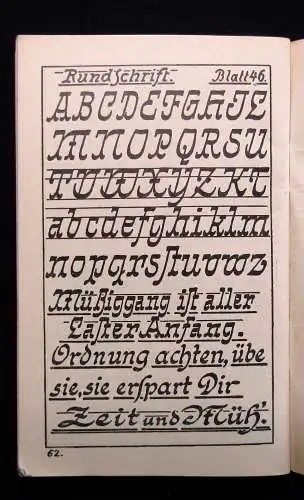 Rundſchrift. Blatt 46.
ABCDEFGHIL
MNOPQRSU
TUWXYZKT
abcdefghiklm
nopqrsſtuvwz
Müßiggang iſt aller
Laſter Anfang.
Ordnung achten, übe
sie, sie erſpart Dir
Zeit und Müh'.
62.